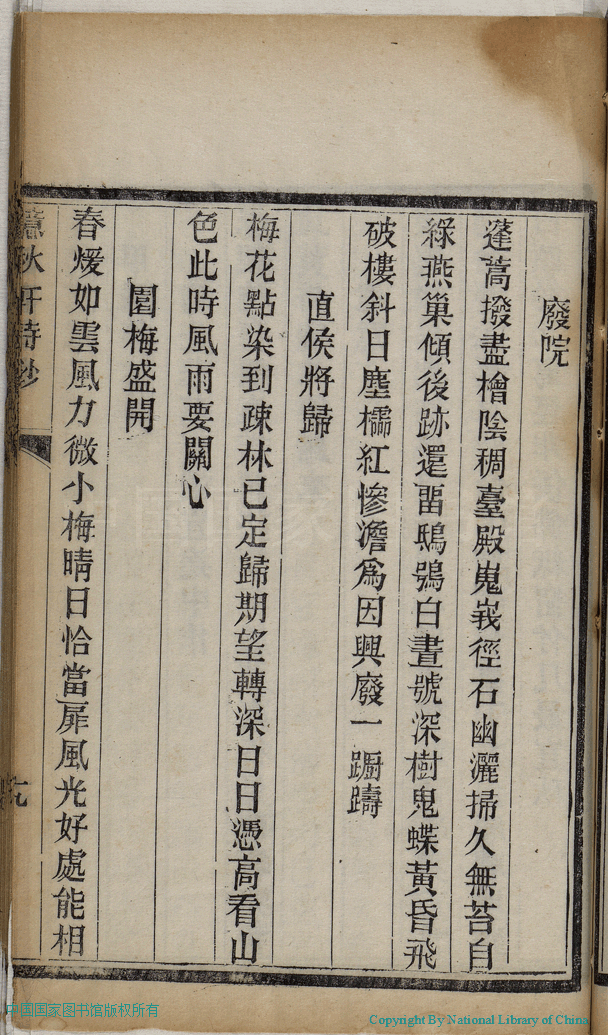 廢院
蓬蒿撥盡檜陰稠臺殿嵬峩徑石幽灑掃久無苔自
綠燕巢傾後跡還畱鴟鴞白晝號深樹鬼蝶黃昏飛
破樓斜日塵櫺紅慘澹爲因興廢一躕躊
直侯將歸
梅花點染到疎林已定歸期望轉深日日憑高看山
色此時風雨要關心
園梅盛開
春煖如雲風力微小梅晴日恰當扉風光好處能相
秋軒詩鈔
九
中国国家图书馆版权所有
Copyright By National Library of China